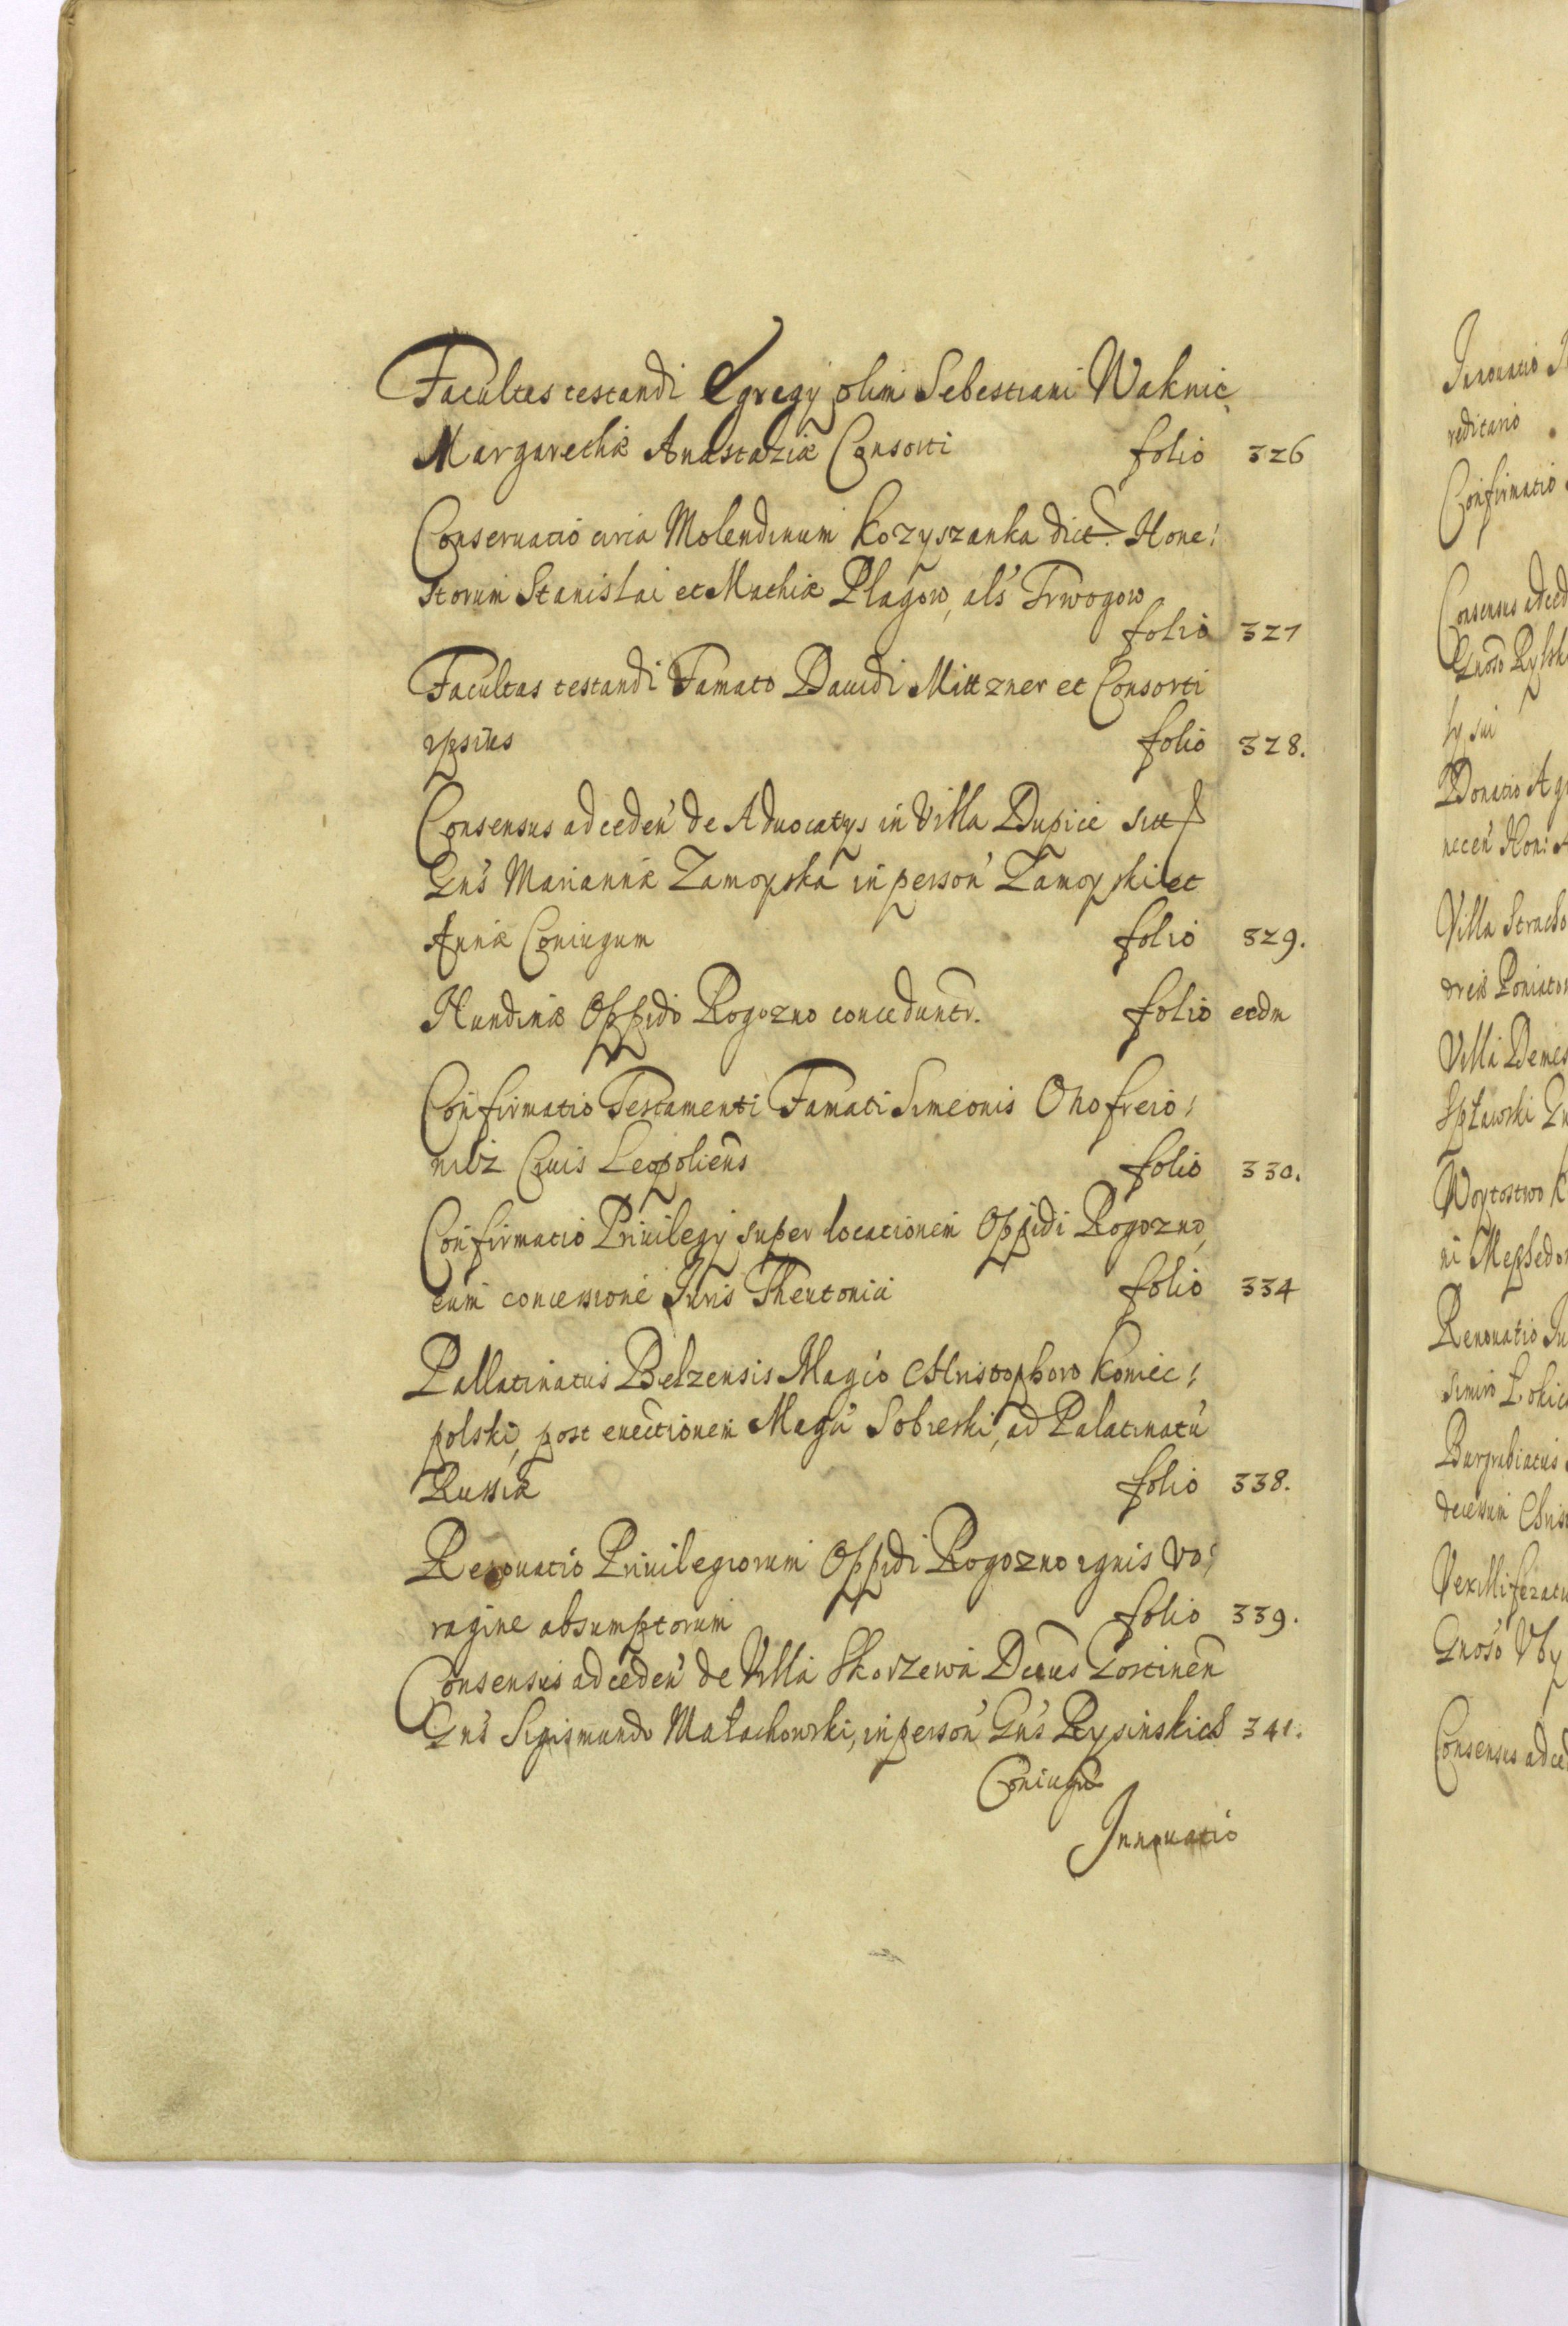 Facultas testandi Egregy olim Sebestiani Waknic
Margarethæ Anastaziæ Consorti folio 326
Conseruatio circa Molendinum Kozyszanka dict. Hone:
storum Stanislai et Mathiæ Plagow, als Trwogow
folio 327
Facultas testandi Famato Dauidi Mittzner et Consorti
ipsius folio 328.
Consensus ad ceden de Aduocatys in Villa Dupice sitt
Gns Mariannæ Zamoyska in person Zamoyski et
Annæ Coniugum folio 329.
Nundinæ Oppido Rogozno conceduntr. folio eodm
Confirmatio Testamenti Famati Simeonis Onofreio:
nibz Ciuis Leopoliens folio 330.
Confirmatio Priuilegy super locationem Oppidi Rogozno,
cum concessione Juris Theutonici folio 334
Pallatinatus Belzensis Magco Christophoro Koniec:
polski, post euectionem Magci Sobieski, ad Palatinatu
Russiæ folio 338.
Renouatio Priuilegiorum Oppidi Rogozno ignis vo:
ragine absumptorum folio 339.
Consensus ad ceden de Villa Skorzewa Dictus Gostinen
Gns Sigismundo Małachowski, in person Gns Rysinskich 341.
Coniugu
Innouatio
Innouatio
reditario
Confirmatio
Consensus ad ced
Gnoso Rylsk
ly sui
Donatio Ag
necen Hon:
Villa Stracho
dreæ Poniatow
Villa Demes
Spławski Gn
Woytostwo K
ni Mephedo
Renouatio Ju
simiro Łokic
Burgrabiatus
decessum Chris
Vexilliferatu
Gnoso Vby
Consensus ad ced